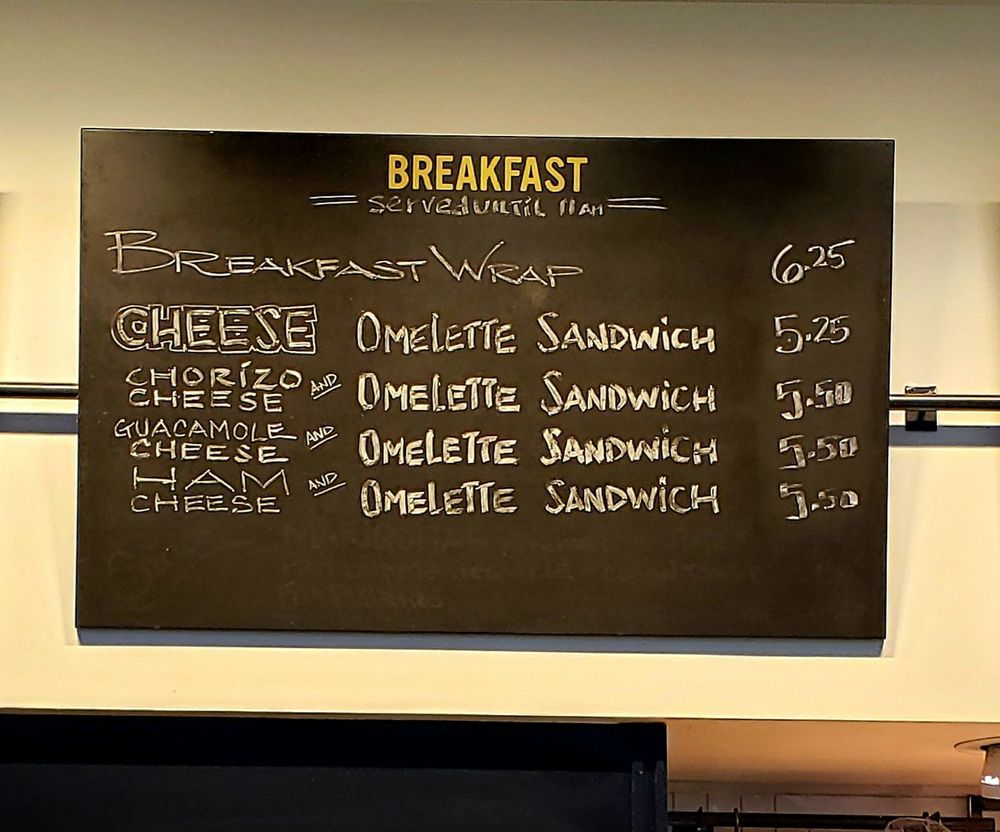 BREAKFAST
served until 11 AM
BREAKFAST WRAP 6.25
CHEESE OMELETTE SANDWiCH 5.25
CHORÍZO AND CHEESE OMELETTE SANDWiCH 5.50
GUACAMOLE AND CHEESE OMELETTE SANDWiCH 5.50
HAM AND CHEESE OMELETTE SANDWiCH 5.50